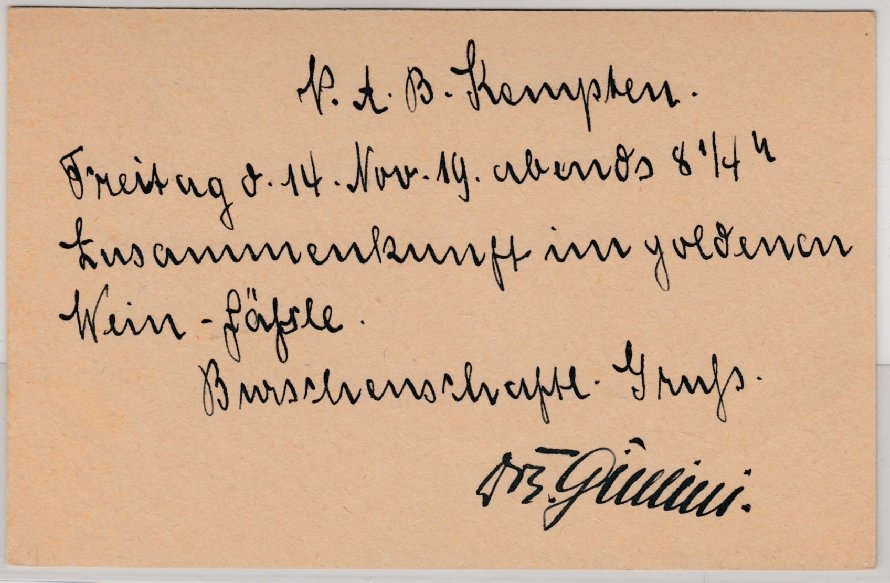 V. A. B. Kempten.
Freitag d. 14. Nov. 19. abends 8 1/4 h
Zusammenkunft im goldenen
Wein-Fäßle.
Burschenschaftl. Gruß.